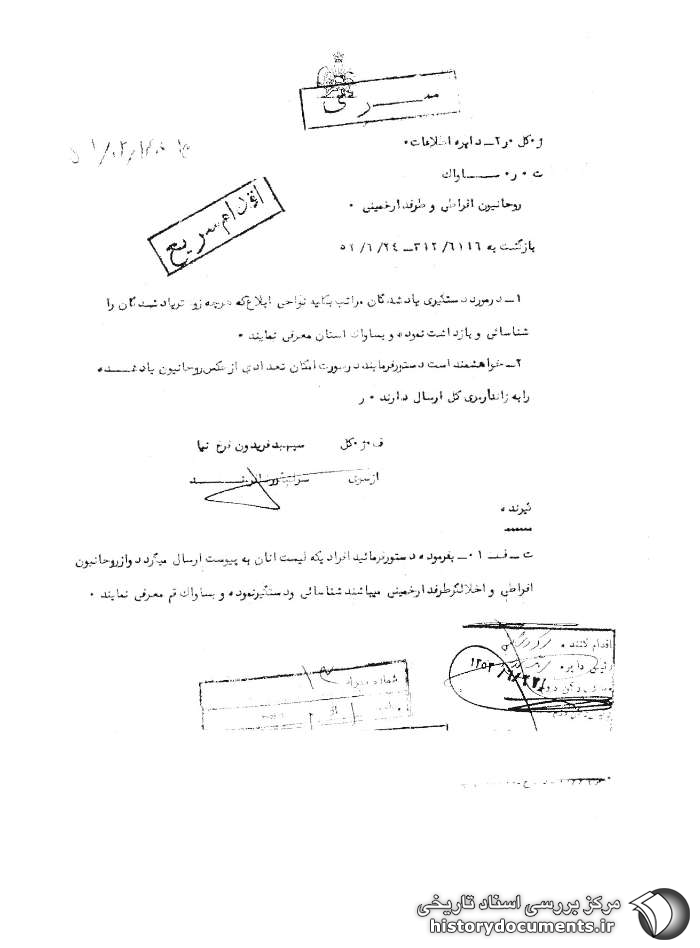 سری
ژ.کل.ر۲ـ دایره اطلاعات.
ت.ر. ساواك
اقدام سریع
روحانیون افراطی و طرفدارخمینی.
بازگشت به ۳۱۲/۶۱۱۶ـ
۱ـ درمورددستگیری یادشدگان مراتب بکلیه نواحی ابلاغ که هرچه زودتریادشدگان را
شناسائی و بازداشت نموده و بساواك استان معرفی نمایند.
۲ـ خواهشمند است دستورفرمایند درصورت امکان تعدادی ازعکس روحانیون یادشده
رابه ژاندارمری کل ارسال دارند. ر
ف.ژ.کل سپهبدفریدون فرخ نیا
ازسوی
گیرنده
ت ـ ف ـ ۰۱ـ بفرموده دستورفرمائید افرادیکه لیست آنان به پیوست ارسال میگردد وازروحانیون
افراطی و اخلالگرطرفدارخمینی میباشند شناسائی ودستگیرنموده و بساواك قم معرفی نمایند.
اقدام کننده.
رئیس دایره.
۱۳۵۳/۶/۲۷
شماره
مرکز بررسی اسناد تاریخی
historydocuments.ir